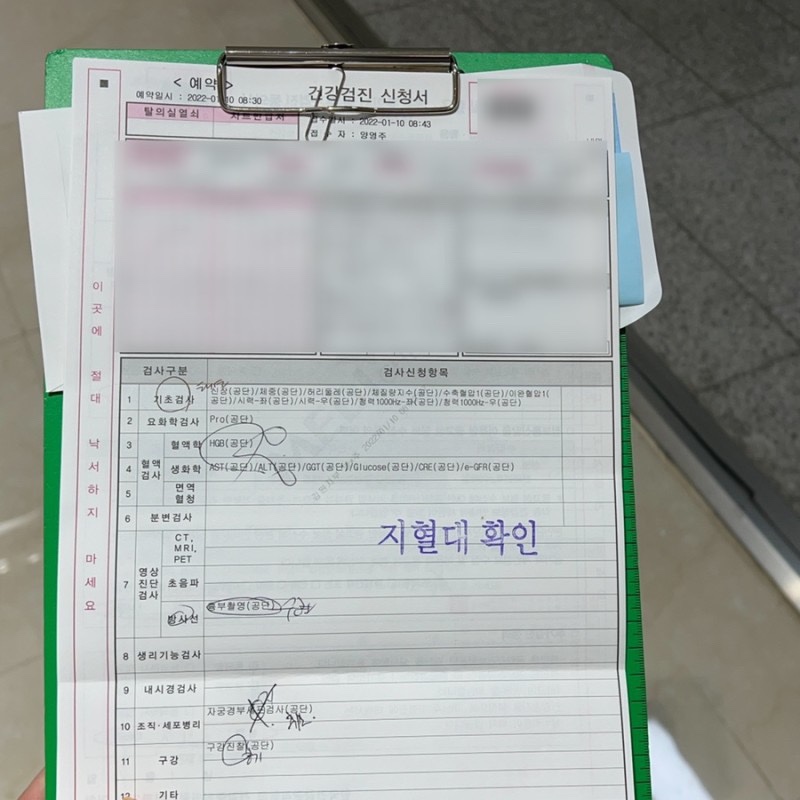 < 예약 >
예약일시 : 2022-01-10 08:30
건강검진 신청서
탈의실열쇠
2022-01-10 08:43
접 수 자 : 양영주
이 곳 에 절 대 낙 서 하 지 마 세 요
검사구분 검사신청항목
1 기초검사 신장(공단)/체중(공단)/허리둘레(공단)/체질량지수(공단)/수축혈압1(공단)/이완혈압1(
공단)/시력-좌(공단)/시력-우(공단)/청력1000Hz-좌(공단)/청력1000Hz-우(공단)
2 요화학검사 Pro(공단)
혈액검사
3 혈액학 HGB(공단)
4 생화학 AST(공단)/ALT(공단)/GGT(공단)/Glucose(공단)/CRE(공단)/e-GFR(공단)
5 면역혈청
6 분변검사
지혈대 확인
7 영상진단검사
CT,
MRI,
PET
초음파
방사선 흉부촬영(공단)
8 생리기능검사
9 내시경검사
10 조직·세포병리 자궁경부세포검사(공단)
11 구강 구강진찰(공단)
12 기타